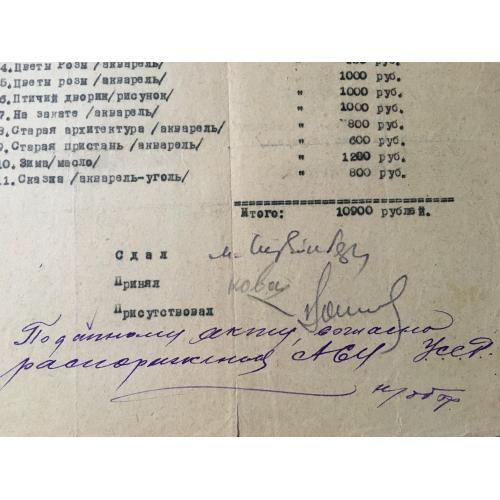 4.Цветы Розы /акварель/
5.Цветы розы /акварель/ " 1000 руб.
6.Птичий дворик/рисунок/ " 1000 руб.
7.На закате /акварель/ " 1000 руб.
8.Старая архитектура /акварель/ " 800 руб.
9.Старая пристань /акварель/ " 600 руб.
10.Зима/масло/ " 1200 руб.
11.Сказка /акварель-уголь/ " 800 руб.
Итого: 10900 рублей.
Сдал
Принял
Присутствовал
По данному акту, согласно
распоряжения